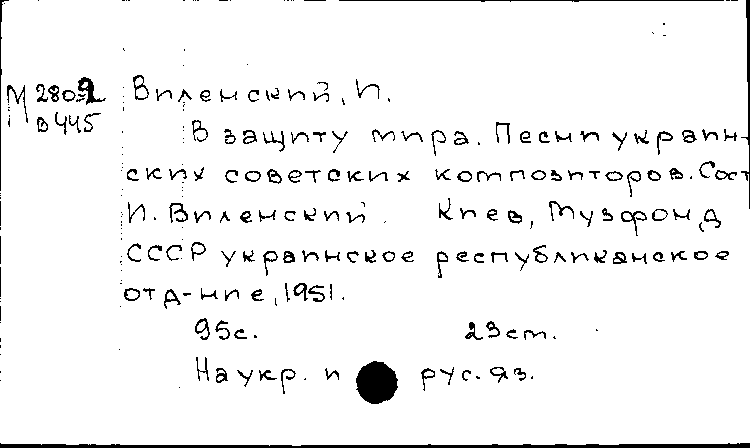 М 2809 Виленский, И.
В 445
В защиту мира. Песни украин-
ских советских композиторов. Сост
И. Виленский. Киев, Музфонд
СССР украинское республиканское
отд-ние, 1951.
95с. 23 ст.
На укр. и рус. яз.